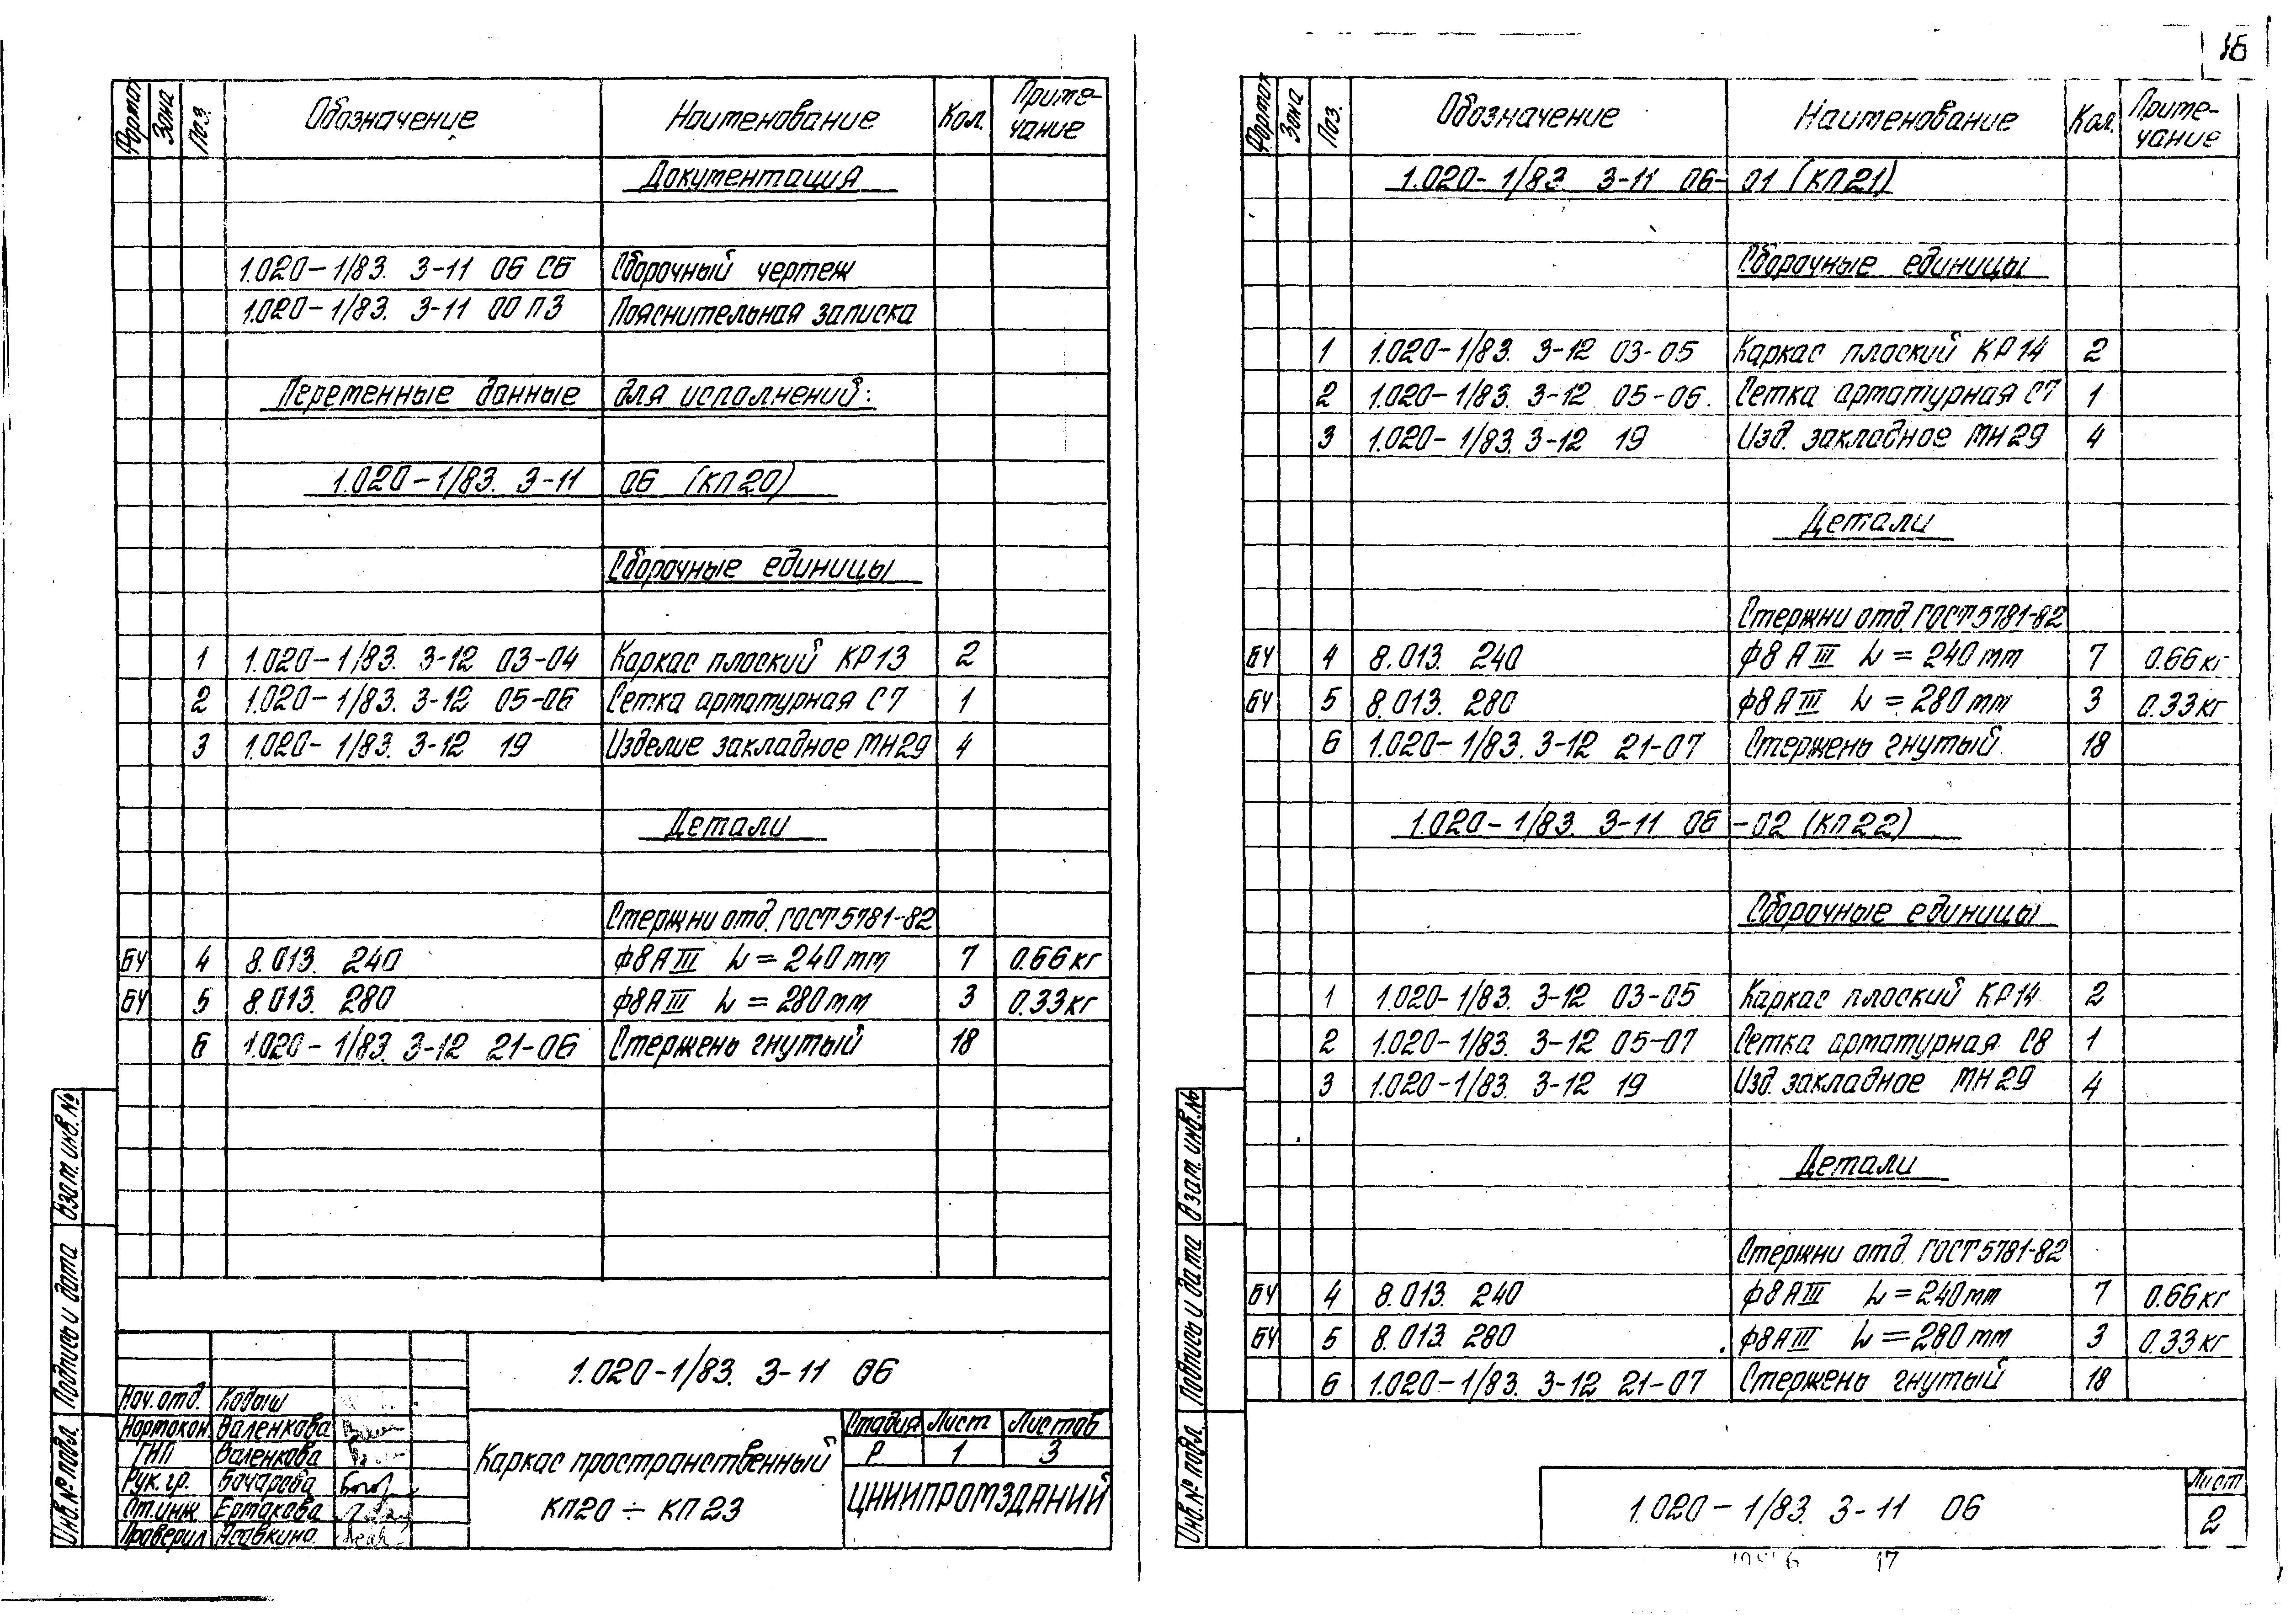 16
Формат Зона Поз. Обозначение Наименование Кол. Приме-
чание
Документация
1.020-1/83. 3-11 06 СБ Сборочный чертеж
1.020-1/83. 3-11 00 ПЗ Пояснительная записка
Переменные данные для исполнений:
1.020-1/83. 3-11 06 (КП20)
Сборочные единицы
1 1.020-1/83. 3-12 03-04 Каркас плоский КР13 2
2 1.020-1/83. 3-12 05-06 Сетка арматурная С7 1
3 1.020-1/83. 3-12 19 Изделие закладное МН29 4
Детали
Стержни отд. ГОСТ5781-82
БЧ 4 8.013. 240 ф8АIII L=240мм 7 0.66кг
БЧ 5 8.013. 280 ф8АIII L=280мм 3 0.33кг
6 1.020-1/83. 3-12 21-06 Стержень гнутый 18
Взам. инв. №
Подпись и дата
Инв. № подл.
1.020-1/83. 3-11 06
Нач. отд. Кодыш
Нормокон Валенкова
ГИП Валенкова
Рук. гр. Бочарова
Ст. инж Ермакова
Проверил
Каркас пространственный
КП20 ÷ КП23
Стадия Лист Листов
Р 1 3
ЦНИИПРОМЗДАНИЙ
Формат Зона Поз. Обозначение Наименование Кол. Приме-
чание
1.020-1/83 3-11 06-01 (КП21)
Сборочные единицы
1 1.020-1/83. 3-12 03-05 Каркас плоский КР14 2
2 1.020-1/83. 3-12 05-06. Сетка арматурная С7 1
3 1.020-1/83. 3-12 19 Изд. закладное МН29 4
Детали
Стержни отд. ГОСТ5781-82
БЧ 4 8.013. 240 ф8АIII L=240мм 7 0.66кг
БЧ 5 8.013. 280 ф8АIII L=280мм 3 0.33кг
6 1.020-1/83. 3-12 21-07 Стержень гнутый 18
1.020-1/83. 3-11 06-02 (КП22)
Сборочные единицы
1 1.020-1/83. 3-12 03-05 Каркас плоский КР14 2
2 1.020-1/83. 3-12 05-07 Сетка арматурная С8 1
3 1.020-1/83. 3-12 19 Изд. закладное МН29 4
Детали
Стержни отд. ГОСТ5781-82
БЧ 4 8.013. 240 ф8АIII L=240мм 7 0.66кг
БЧ 5 8.013 280 ф8АIII L=280мм 3 0.33кг
6 1.020-1/83. 3-12 21-07 Стержень гнутый 18
Взам. инв. №
Подпись и дата
Инв. № подл.
1.020-1/83. 3-11 06
Лист
2
17